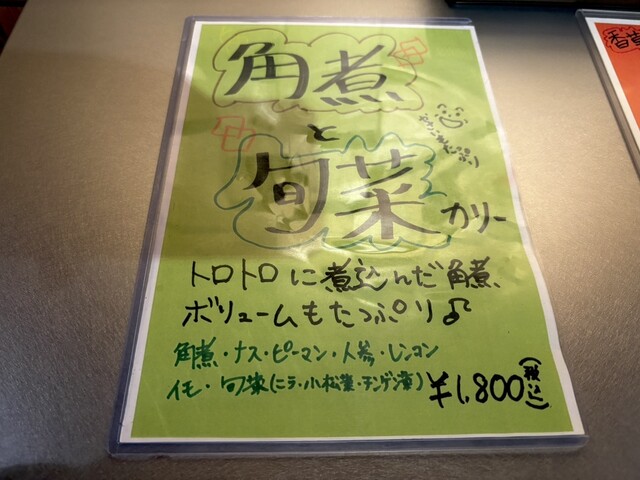 角煮
と
旬菜 カリー
トロトロに煮込んだ角煮
ボリュームもたっぷり♪
角煮・ナス・ピーマン・人参・レンコン
イモ・旬菜(ニラ・小松菜・チンゲン菜)
¥1,800(税込)
香草